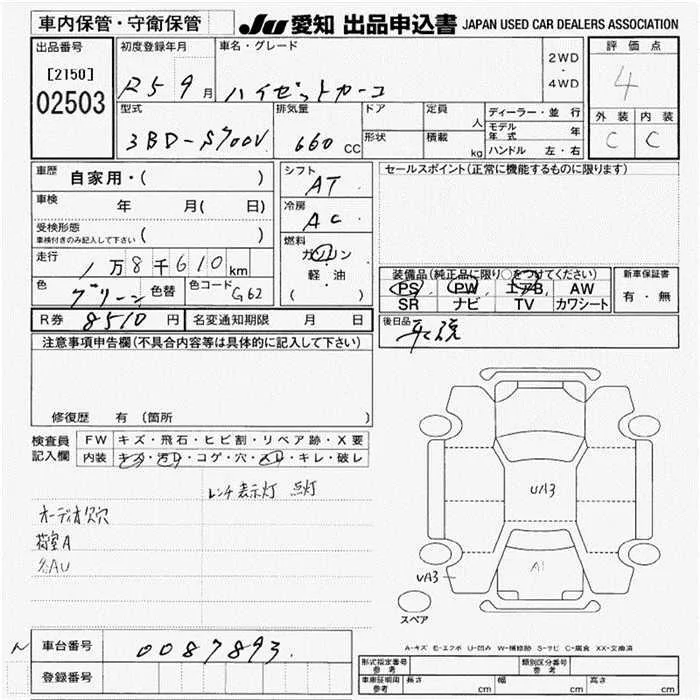 車内保管・守衛保管
JU 愛知 出品申込書 JAPAN USED CAR DEALERS ASSOCIATION
出品番号
[2150]
02503
初度登録年月
R5 9月
車名・グレード
ハイゼットカーゴ
2WD
・
4WD
評価点
4
外装 内装
C C
型式
3BD-S700V
排気量
660 CC
ドア
形状
定員 人
積載 kg
ディーラー・並行
モデル年式 年
ハンドル 左・右
車歴 自家用・( )
車検 年 月( 日)
受検形態
車検付きのみ記入して下さい ( )
走行 1万8千610km
色 グリーン 色替 色コード G62
シフト AT
冷房 AC
燃料
ガソリン
・
軽・油
( )
セールスポイント(正常に機能するものに限ります)
装備品(純正品に限り○をつけてください)
PS PW エアB AW
SR ナビ TV カワシート
新車保証書
有・無
R券 8510円 名変通知期限 月 日
後日品
取説
注意事項申告欄(不具合内容等は具体的に記入して下さい)
修復歴 有(箇所
検査員
記入欄
FW キズ・飛石・ヒビ割・リペア跡・X要
内装 キズ・汚れ・コゲ・穴・スレ・キレ・破レ
レンチ表示灯 点灯
オーディオ欠穴
荷室A
各AU
UA3
A1
UA3
スペア
A-キズ E-エクボ U-凹み W-補修跡 S-サビ C-腐食 XX-交換済
N
車台番号 0087893
登録番号
形式指定番号
参考
類別区分番号
参考
車庫証明用
参考
長さ cm 幅 cm 高さ cm